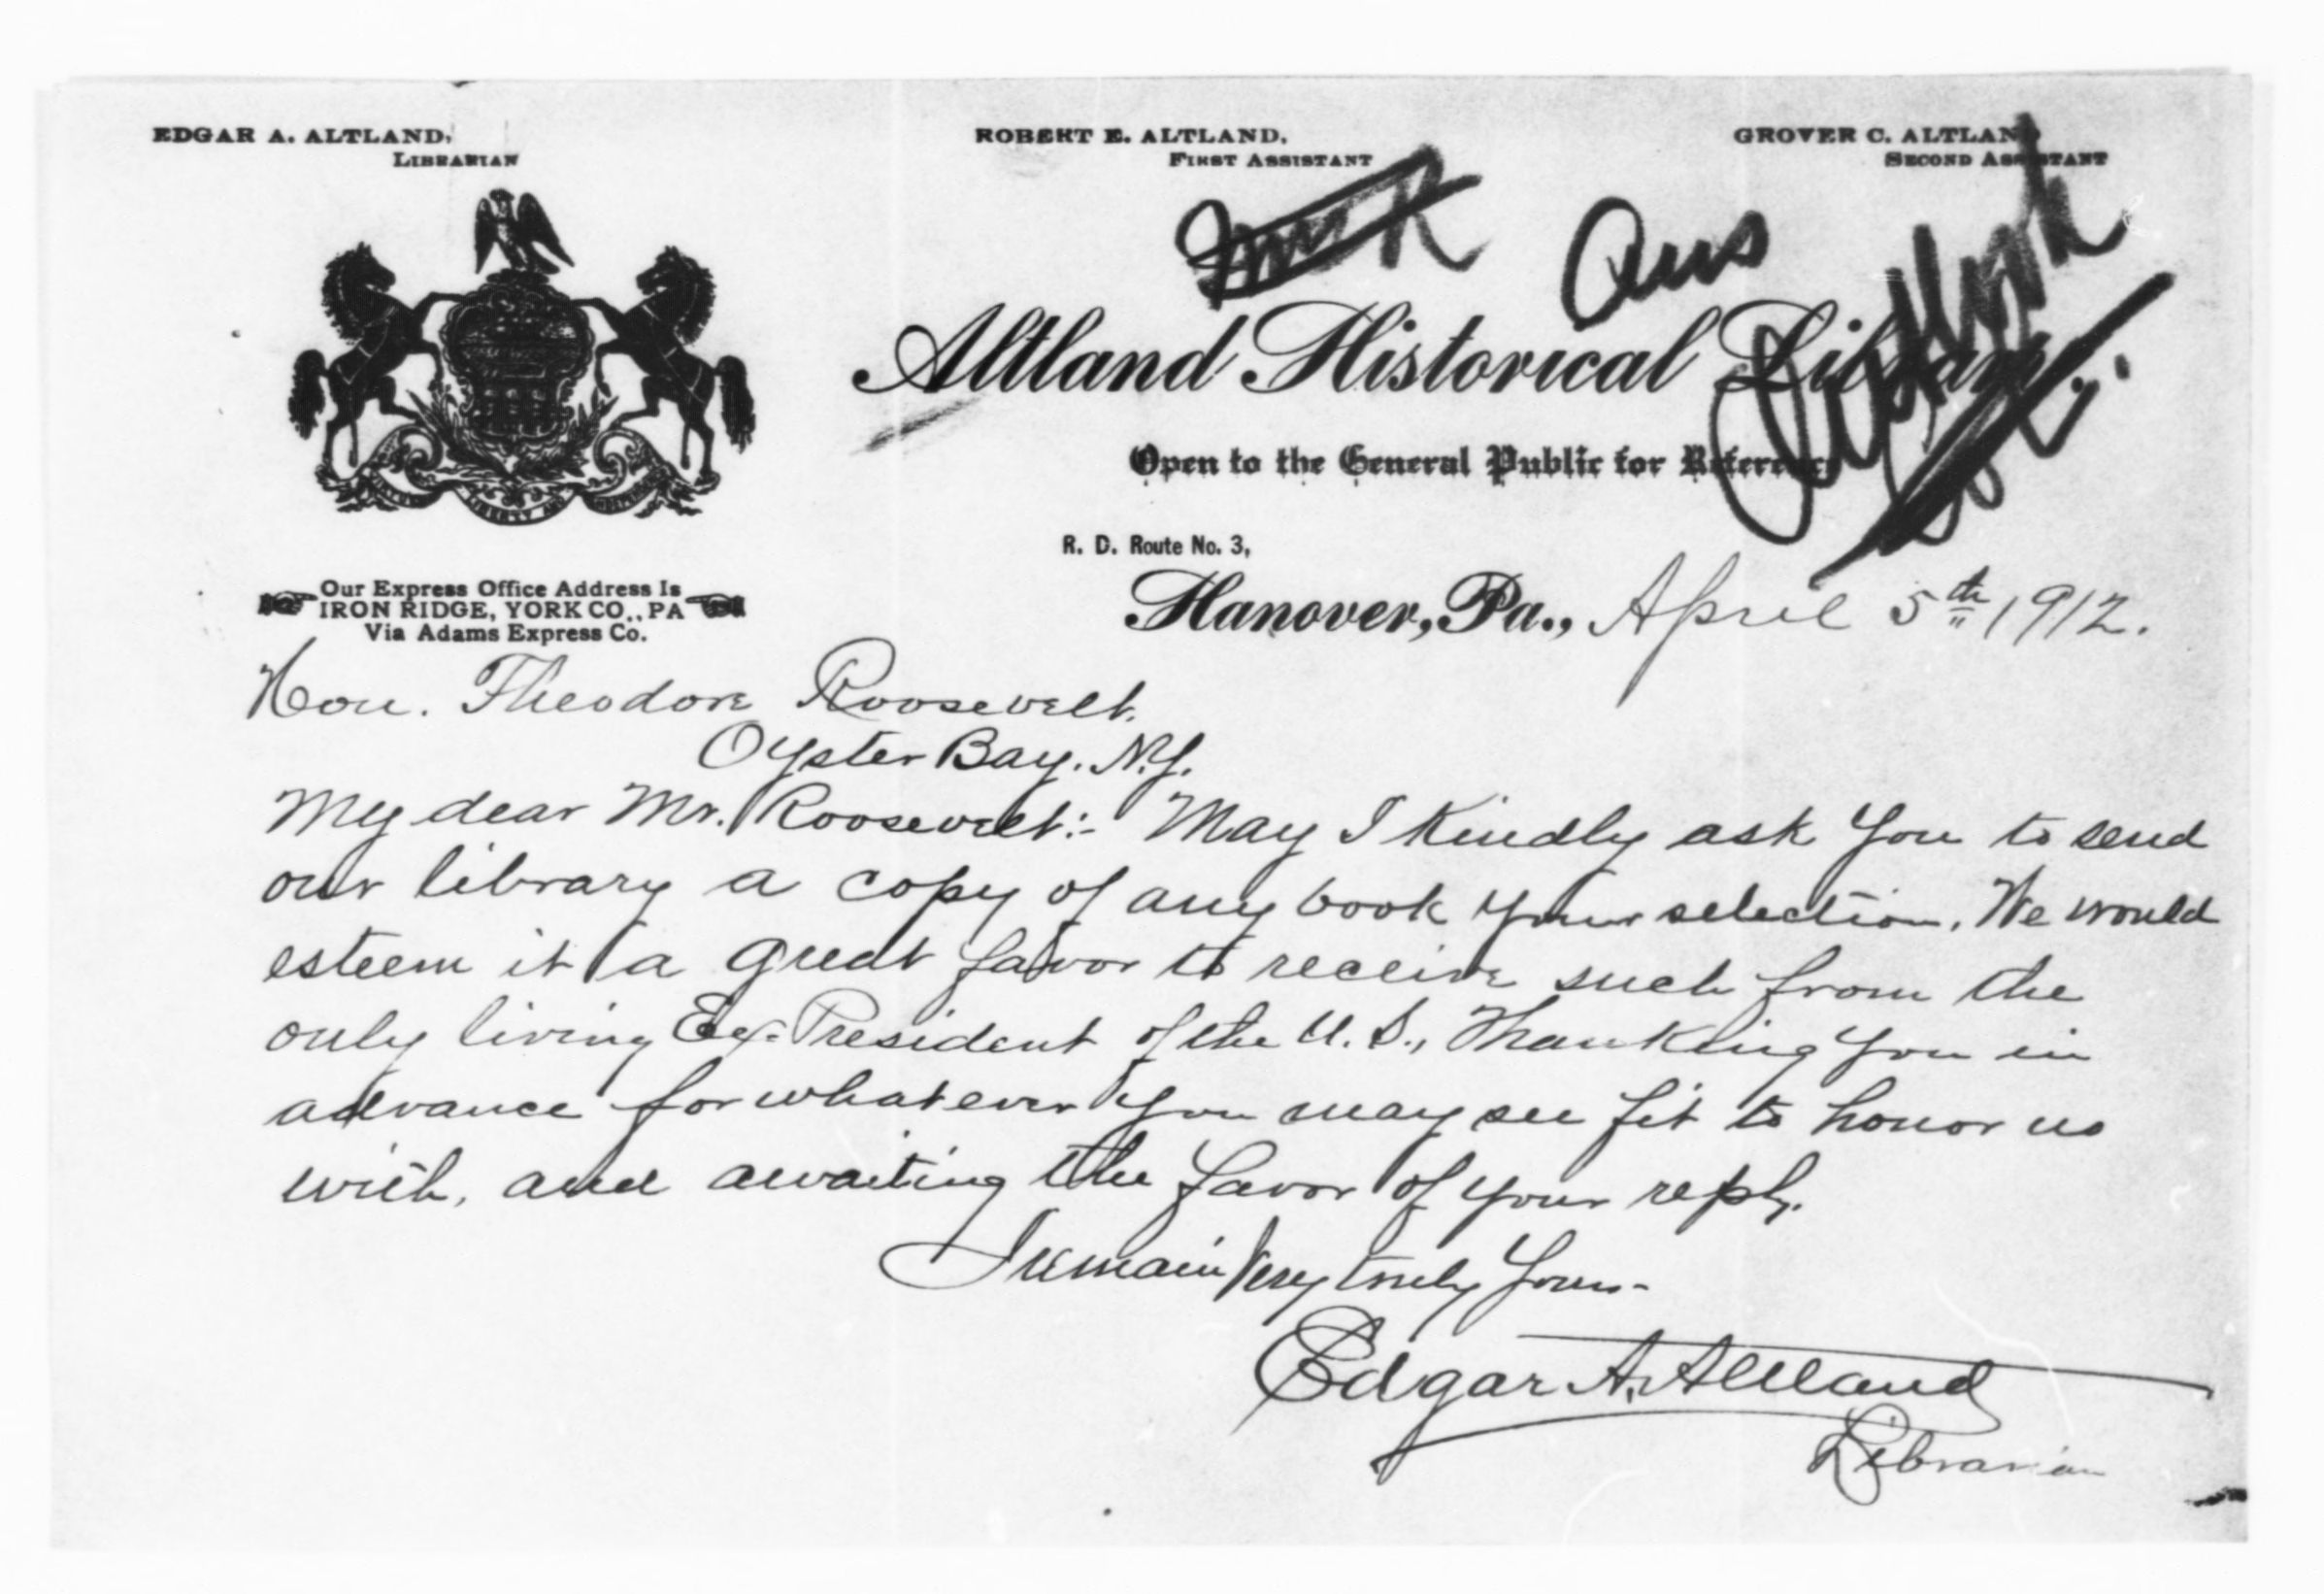 EDGAR A. ALTLAND,
LIBRARIAN
ROBERT E. ALTLAND,
FIRST ASSISTANT
GROVER C. ALTLAND
SECOND ASSISTANT
Ans
Altland Historical Library
Open to the General Public for Reference
LIBERTY AND
R. D. Route No. 3,
Our Express Office Address Is
IRON RIDGE, YORK CO., PA
Via Adams Express Co.
Hanover, Pa., April 5th 1912.
Hon. Theodore Roosevelt.
Oyster Bay. N.Y.
My dear Mr. Roosevelt:- May I Kindly ask You to send
our library a copy of any book your selection. We would
esteem it a great favor to receive such from the
only living Ex-President of the U. S., Thanking You in
advance for whatever You may see fit to honor us
with, and awaiting the favor of your reply.
I remain Very truly Yours-
Edgar A. Altland
Librarian